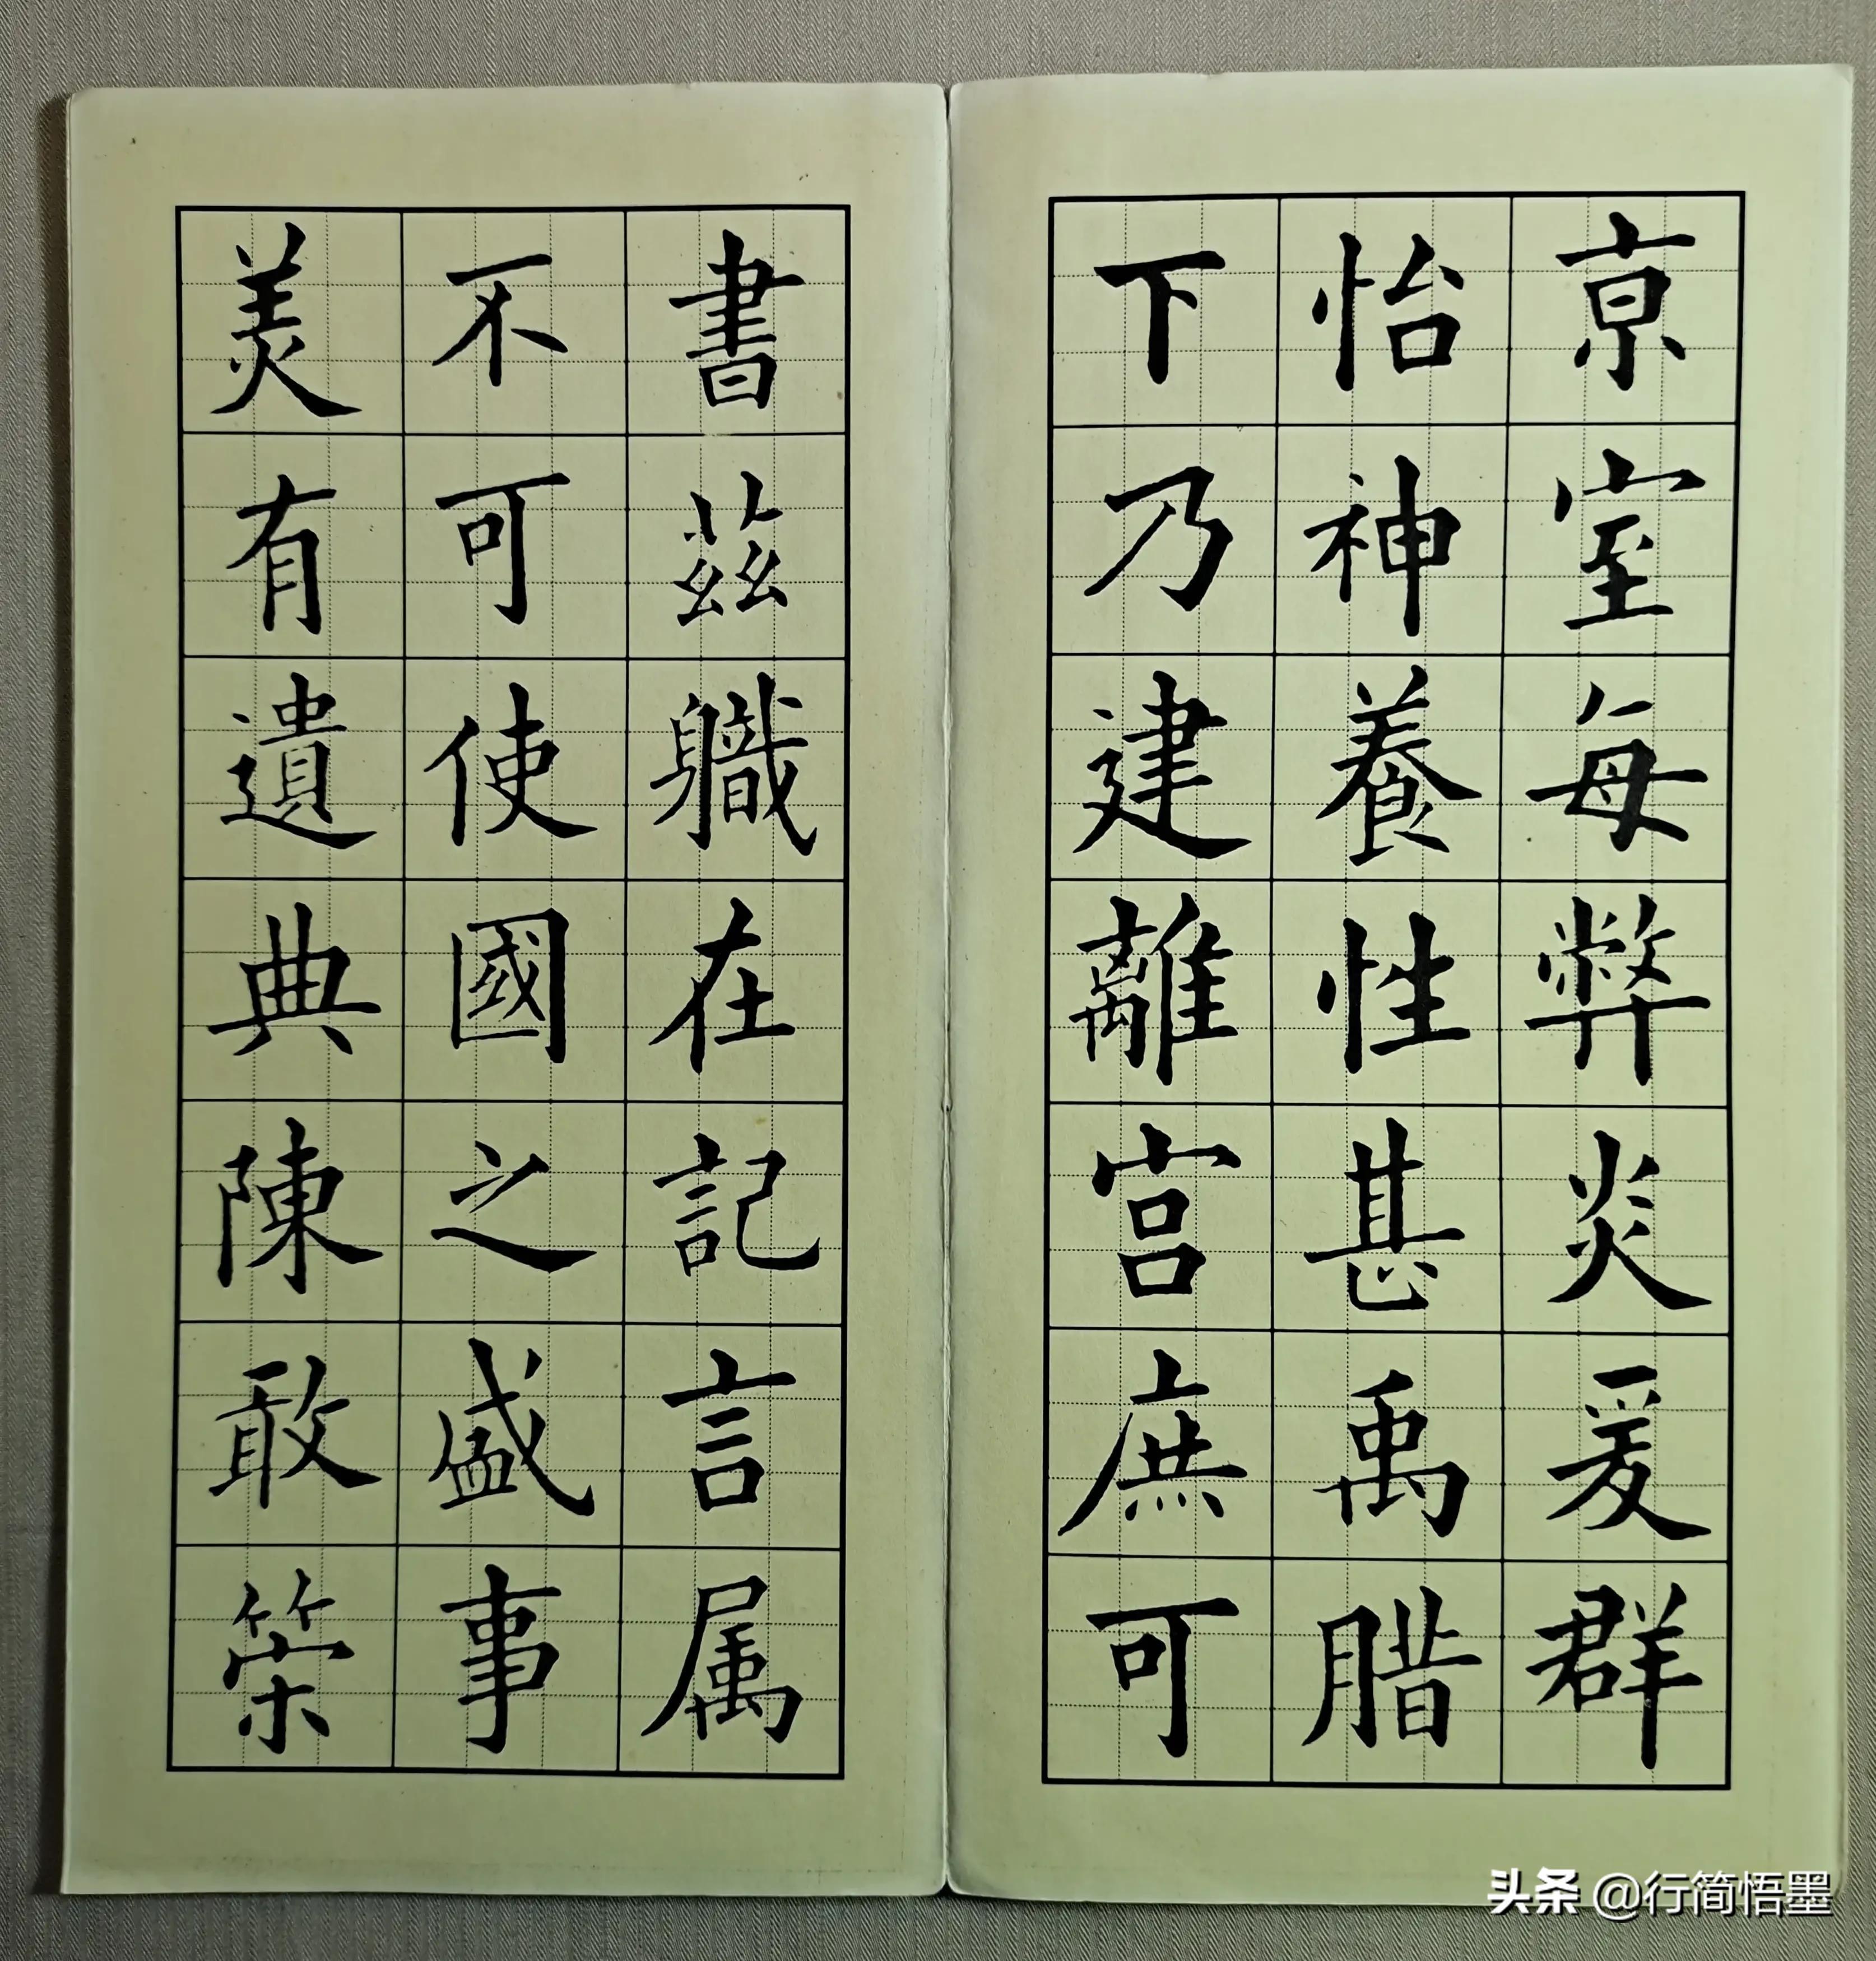 京室每弊炎爰群
怡神養性甚禹腊
下乃建離宫庶可
書茲職在記言属
不可使國之盛事
美有遺典陳敢䇿
头条 @行简悟墨